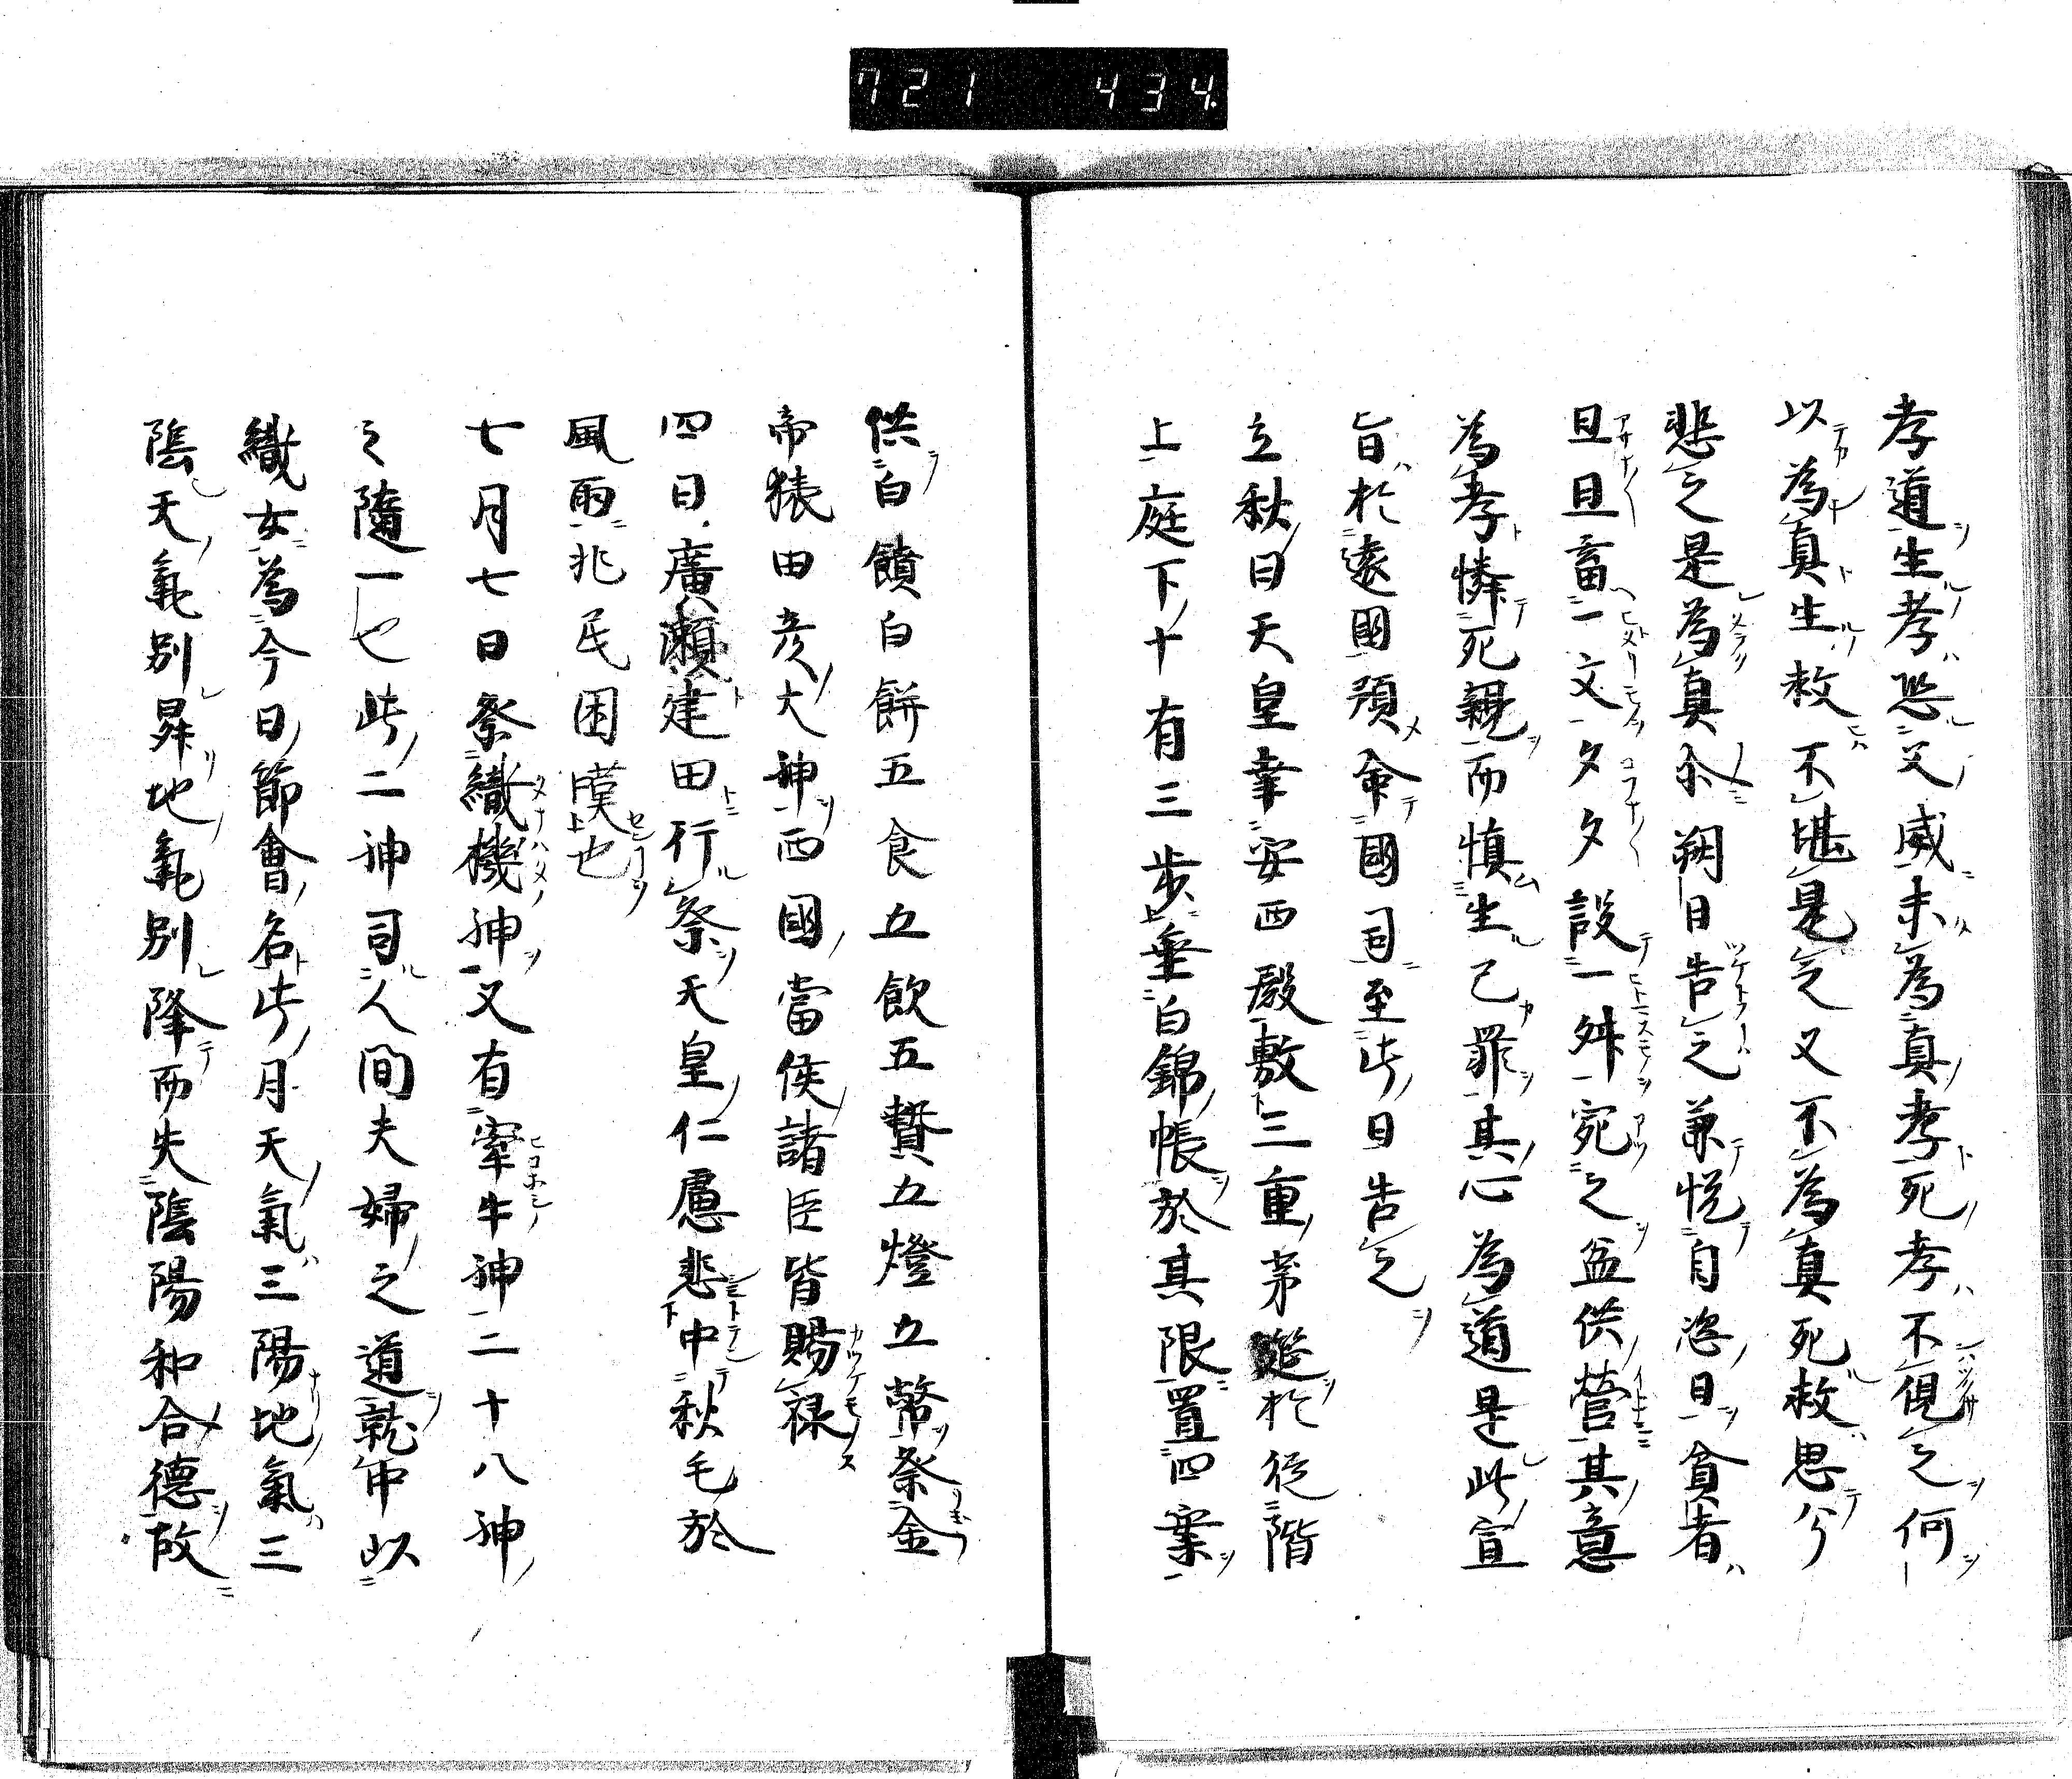 721 434
孝道生孝恐父威未為真孝死孝不俔之何
以為真生敖不堪是之又不為真死敖思兮
悲之是為真尒朔日告之兼悦自恣日貧者
旦旦畜一文夕夕設一舛宛之盆供營其意
為孝憐死親而慎生己罪其心為道是此宣
旨於遠國預命國司至此日告之
立秋日天皇幸安西殿敷三重茅筵於從階
上庭下十有三步垂白錦帳於其限置四案
供白饙白餅五食五飲五贄五燈五幣祭金
帝猿田彦大神西國當侯諸臣皆賜禄
四日廣瀬建田行祭天皇仁慮悲中秋毛於
風雨兆民困嘆也
七月七日祭織機神又有牽牛神二十八神
之隨一也此二神司人間夫婦之道就中以
織女為今日節會名此月天氣三陽地氣三
陰天氣別昇地氣別降而失陰陽和合德故